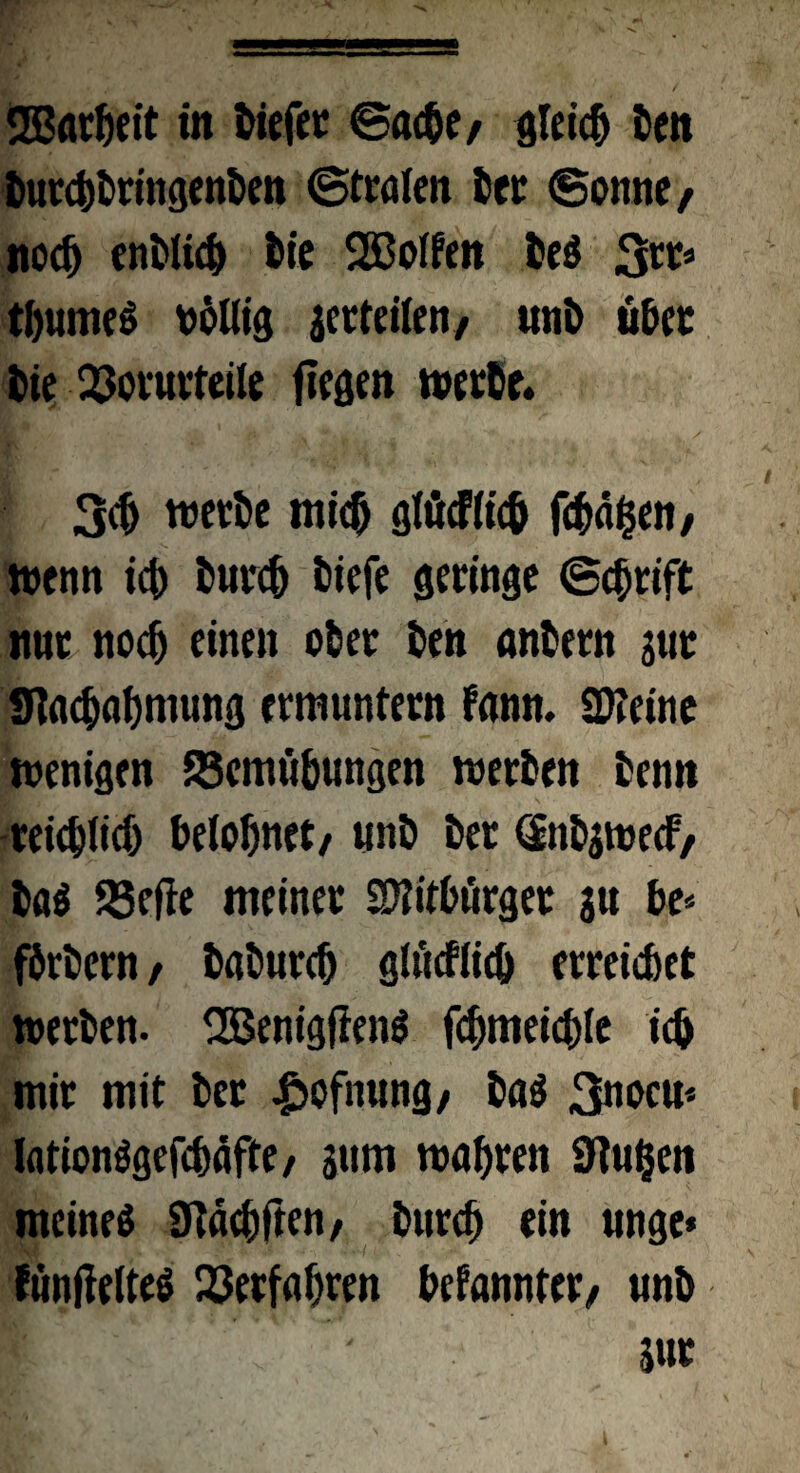 Warheit in dieser Sache, gleich den
durchdringenden Stralen der Sonne,
noch endlich die Wolken des Irr-
thumes völlig zerteilen, und über
die Vorurteile siegen werde.
Ich werde mich glücklich schäßen,
wenn ich durch diese geringe Schrift
nur noch einen oder den andern zur
Nachahmung ermuntern kann. Meine
wenigen Bemühungen werden denn
reichlich belohnet, und der Endzweck,
das Beste meiner Mitbürger zu be-
fördern, dadurch glücklich erreichet
werden. Wenigstens schmeichle ich
mir mit der Hofnung, das Inocu-
lationsgeschäfte, zum wahren Nutzen
meines Nächsten, durch ein unge-
künsteltes Verfahren bekannter, und
zur